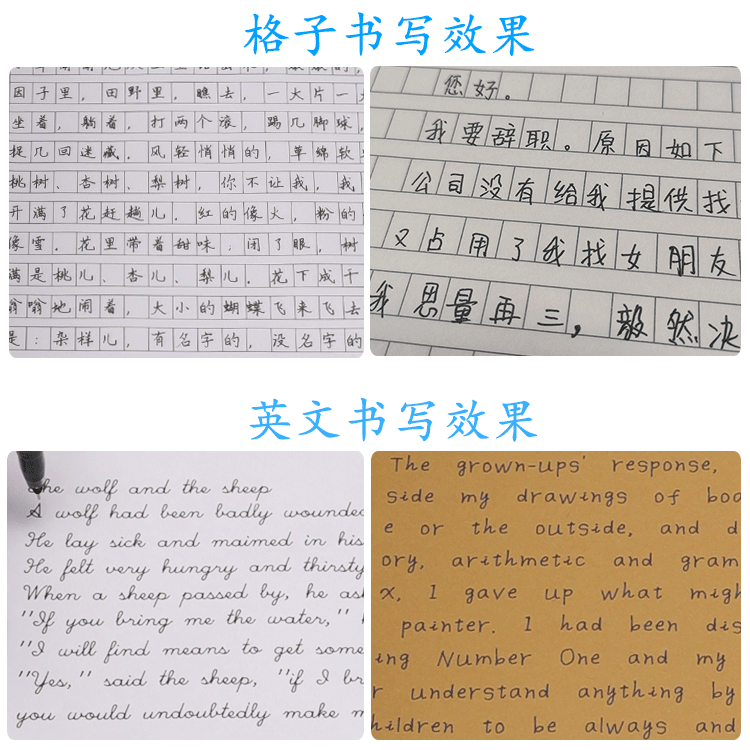 格子书写效果
因子里，田野里，瞧去，一大片一
坐着，躺着，打两个滚，踢几脚球，
捉几回迷藏。风轻悄悄的，草绵软
桃树、杏树、梨树，你不让我，我
开满了花赶趟儿。红的像火，粉的
像雪。花里带着甜味，闭了眼，树
满是桃儿、杏儿、梨儿。花下成千
嗡嗡地闹着，大小的蝴蝶飞来飞去
是：杂样儿，有名字的，没名字的
您好。
我要辞职。原因如下
公司没有给我提供找
又占用了我找女朋友
我思量再三，毅然决
英文书写效果
The wolf and the sheep
A wolf had been badly wounded
He lay sick and maimed in his
He felt very hungry and thirsty
When a sheep passed by, he as
"If you bring me the water,"
"I will find means to get some
"Yes," said the sheep, "if I br
you would undoubtedly make m
The grown-ups' response,
side my drawings of boa
e or the outside, and d
ory, arithmetic and gram
x. I gave up what migh
painter. I had been dis
ing Number One and my
r understand anything by
hildren to be always and